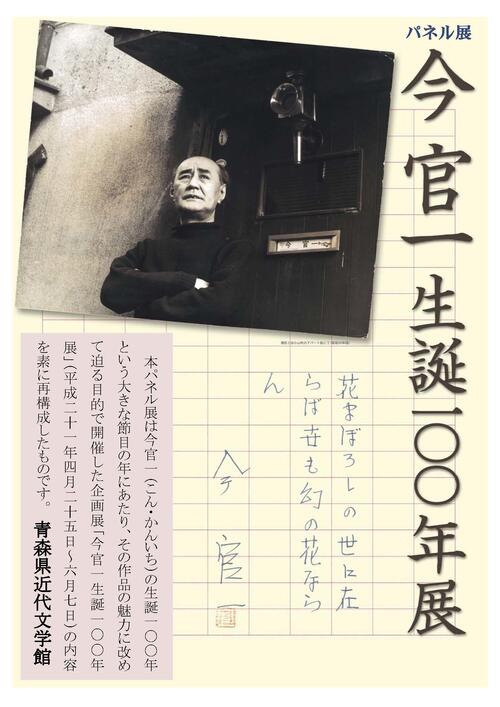 パネル展
今官一生誕一〇〇年展
今官一
花まぼろしの世に在
らば世も幻の花なら
ん
今官一
本パネル展は今官一（こん・かんいち）の生誕一〇〇年
という大きな節目の年にあたり、その作品の魅力に改め
て迫る目的で開催した企画展「今官一生誕一〇〇年
展」（平成二十一年四月二十五日～六月七日）の内容
を素に再構成したものです。
青森県近代文学館